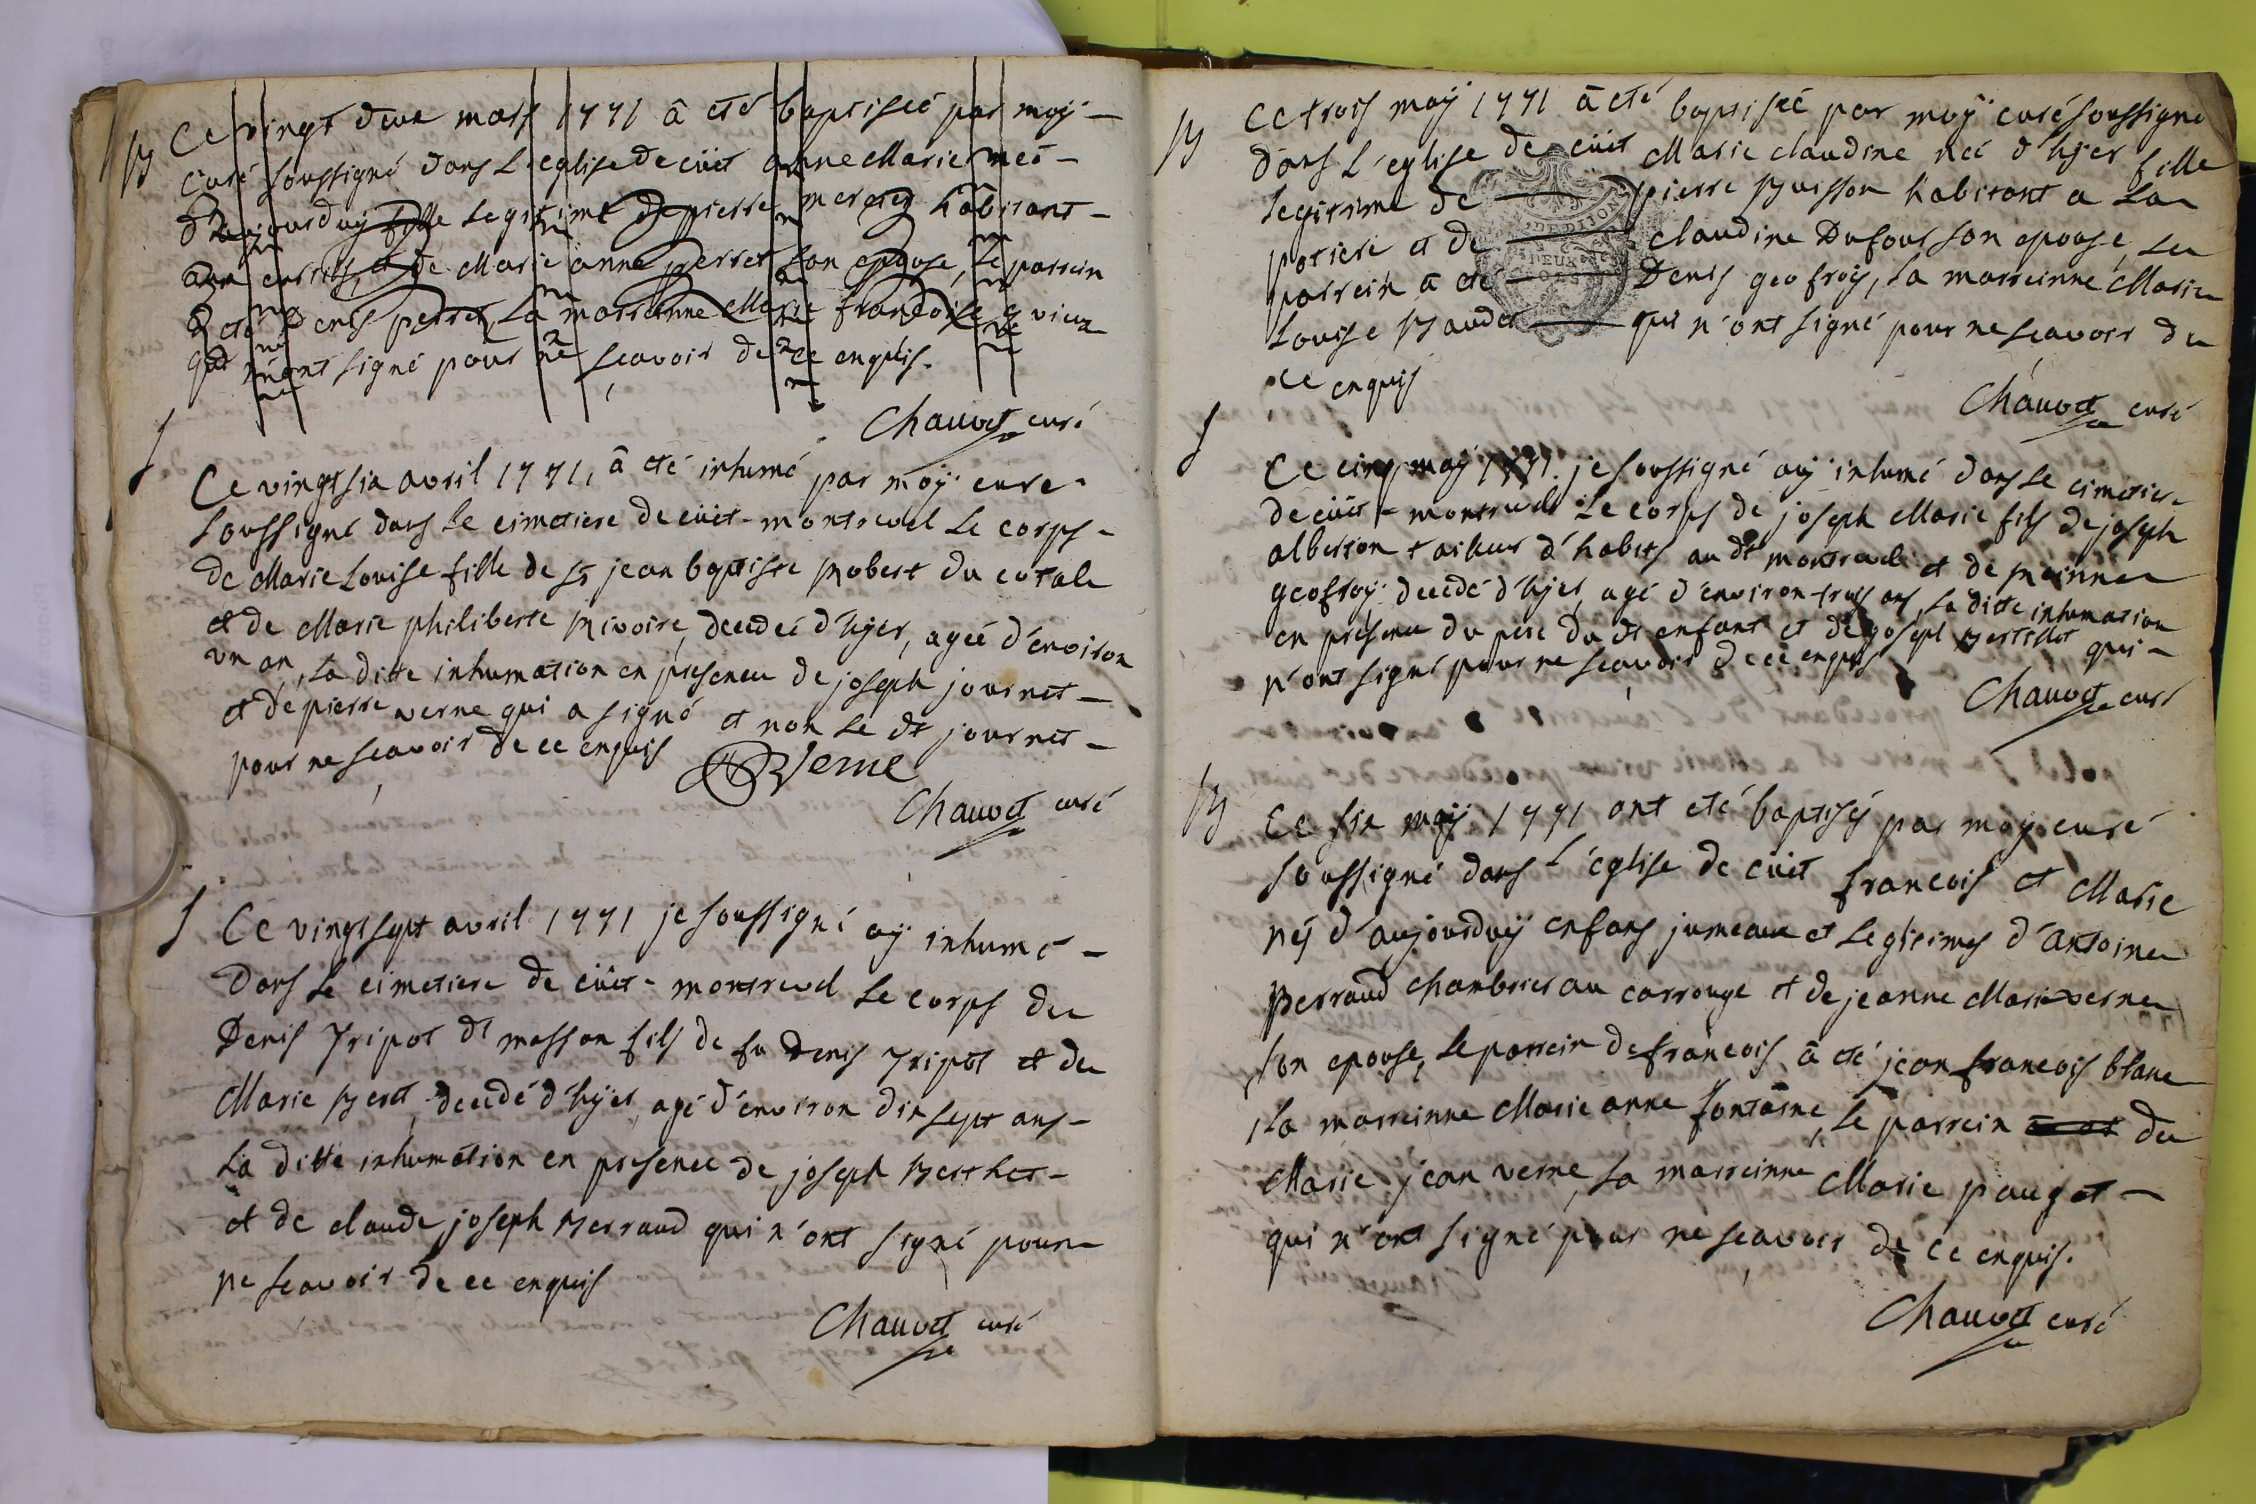 B
Ce vingt deux mars 1771 â eté baptiseé par moÿ
Curé soussigné dans L'eglise de cüet anne Marie neé
d'aujourduÿ fille Legitime de pierre mercier habitant
aux et de Marie anne perret son epouse, Le parrein
a eté Denis perret, La marreinne Marie francoise
qui n'ont signé pour ne sçavoir de ce enquis.
Chauvet curé
S
Ce vingtsix avril 1771, â eté inhumé par moÿ cure
soussigné dans le cimetiere de cüet-montrevel Le corps
de Marie Louise fille de Sr jean baptiste Robert du
et de Marie philiberte Rivoire, decedeé d'hÿer, ageé d'environ
un an, La ditte inhumation en presence de joseph journet
et de pierre verne qui a signé et non le dt journet
pour ne sçavoir de ce enquis
Verne
Chauvet curé
S
Ce vingtsept avril 1771 je soussigné aÿ inhumé
dans Le cimetiere de cüet-montrevel Le corps de
Denis Tripot dt masson fils de fu Denis Tripot et de
Marie decedé d'hÿer, agé d'environ dix sept ans
La ditte inhumation en presence de joseph Berthet
et de claude joseph Berraud qui n'ont signé pour
ne sçavoir de ce enquis
Chauvet curé
B
Ce trois maÿ 1771 â eté baptiseé par moÿ curé soussigné
dans L'eglise de cüet Marie claudine neé d'hÿer fille
Legitime de pierre Buisson habitant a La
poriere et de claudine Dufour son epouse, Le
parrein â eté Denis geofroÿ, La marreinne Marie
Louise Baudet qui n'ont signé pour ne sçavoir de
ce enquis
Chauvet curé
S
Ce cinq maÿ 1771. je soussigné aÿ inhumé dans Le cimetiere
de cüet-montrevel Le corps de joseph Marie fils de joseph
alberson tailleur d'habits au dt montrevel et de
geofroÿ decedé d'hÿer, agé d'environ trois ans, La ditte inhumation
en presence du pere du dt enfant et de joseph qui
n'ont signé pour ne sçavoir de ce enquis
Chauvet curé
B
Ce six maÿ 1771 ont eté baptisés par moÿ curé
soussigné dans L'église de cüet francois et Marie
nés d'aujourduÿ enfans jumeaux et Legitimes d'antoine
Perraud chambrier au carrouge et de jeanne Marie verne
son epouse, Le parrein de francois â eté jean francois blanc
La marreinne Marie anne fontaine, Le parrein de
Marie jean verne, La marreinne Marie pauget
qui n'ont signé pour ne sçavoir de ce enquis.
Chauvet curé